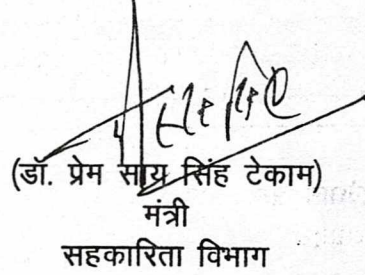 (डॉ. प्रेम साय सिंह टेकाम)
मंत्री
सहकारिता विभाग